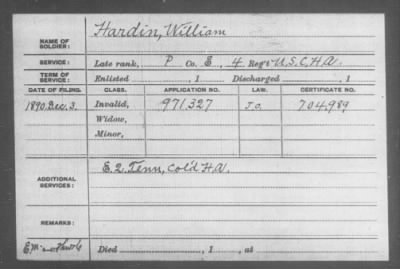 NAME OF SOLDIER: Hardin, William
SERVICE: Late rank, P Co. E, 4 Reg't U.S.C.H.A.
TERM OF SERVICE: Enlisted , 1 Discharged , 1
DATE OF FILING. CLASS. APPLICATION NO. LAW. CERTIFICATE NO.
1890 Dec. 3. Invalid, 971,327 J.O. 704,989
Widow,
Minor,
ADDITIONAL SERVICES: E. 2. Tenn, Col'd H.A.
REMARKS:
Died , 1 , at